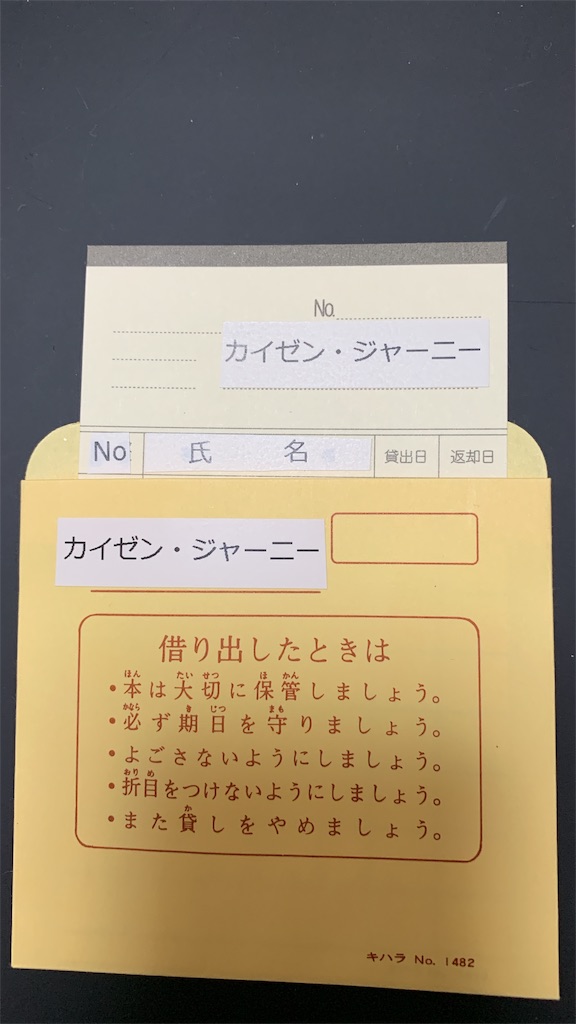 No.
カイゼン・ジャーニー
No 氏 名 貸出日 返却日
カイゼン・ジャーニー
借り出したときは
ほん たい せつ ほ かん
・本は大切に保管しましょう。
かなら き じつ まも
・必ず期日を守りましょう。
・よごさないようにしましょう。
おり め
・折目をつけないようにしましょう。
か
・また貸しをやめましょう。
キハラ No. 1482